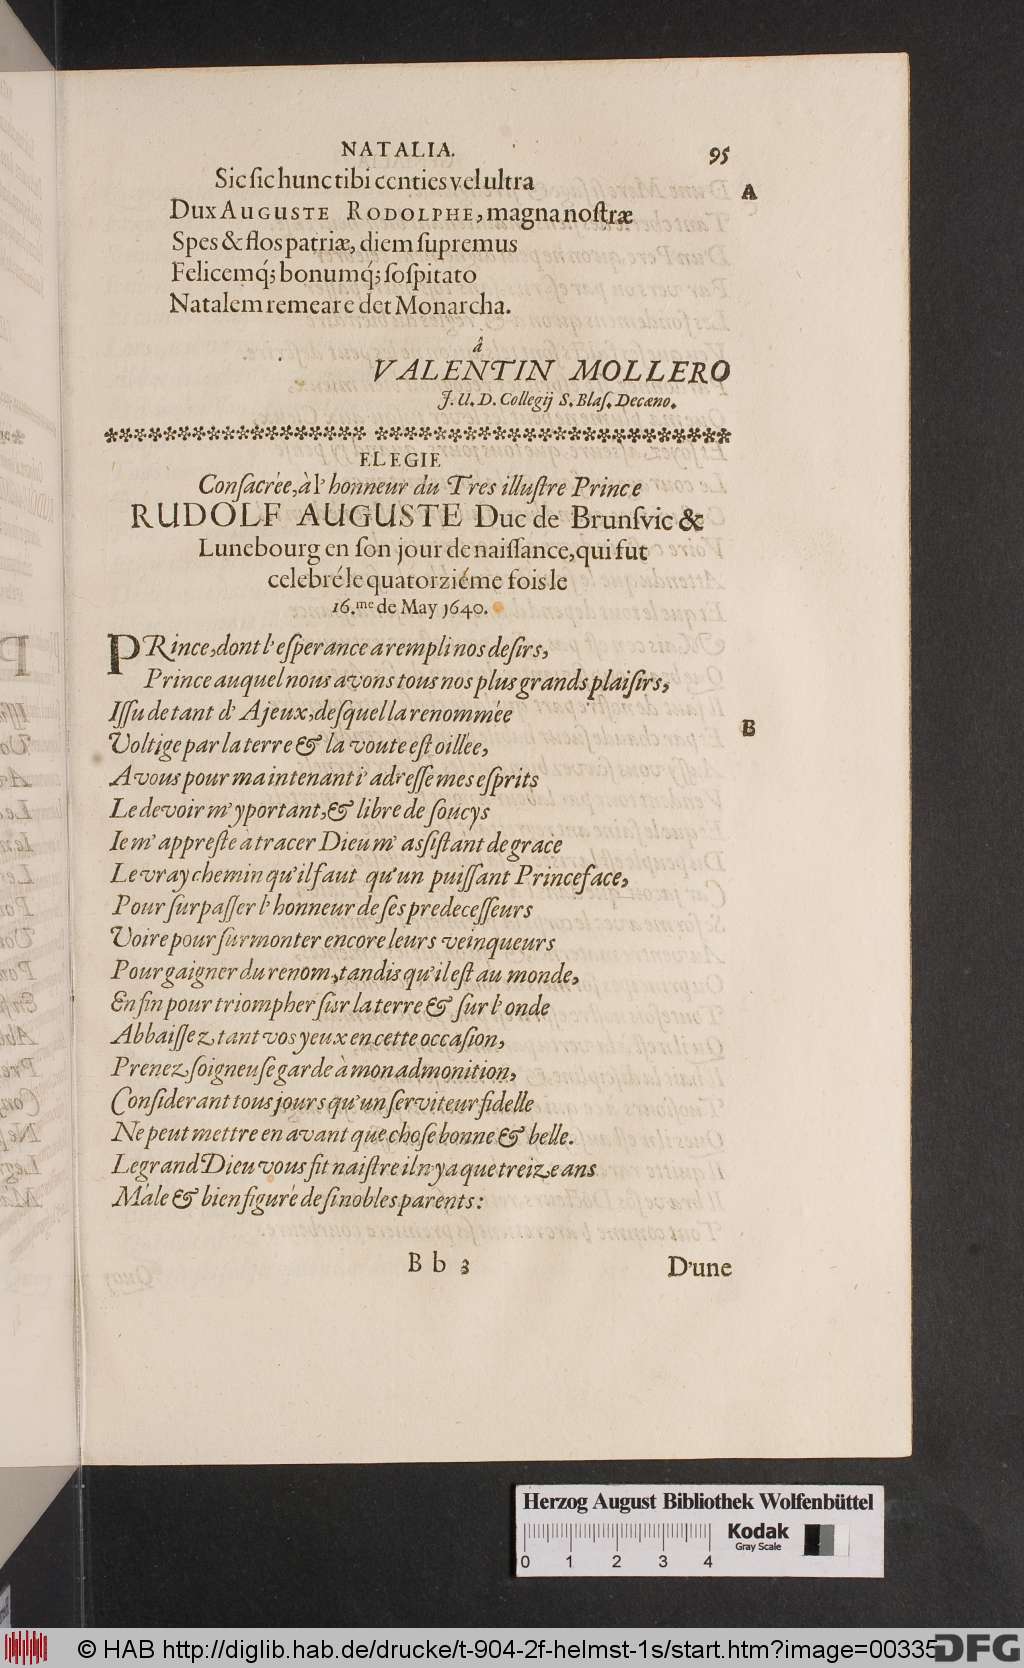 NATALIA. 95
Sic sic hunc tibi centies vel ultra A
Dux AUGUSTE RODOLPHE, magna nostræ
Spes & flos patriæ, diem supremus
Felicemq́; bonumq́; sospitato
Natalem remeare det Monarcha.
â
VALENTIN MOLLERO
J. U. D. Collegij S. Blas. Decæno.
ELEGIE
Consacrée, à l'honneur du Tres illustre Prince
RUDOLF AUGUSTE Duc de Brunsvic &
Lunebourg en son jour de naissance, qui fut
celebré le quatorziéme fois le
16.me de May 1640.
PRince, dont l'esperance a rempli nos desirs,
Prince auquel nous avons tous nos plus grands plaisirs,
Issu de tant d'Ajeux, desquel la renommée
Voltige par la terre & la voute est oillée, B
A vous pour maintenant i'adresse mes esprits
Le devoir m'y portant, & libre de soucys
Ie m'appreste à tracer Dieu m'assistant de grace
Le vray chemin qu'il faut qu'un puissant Prince face,
Pour surpasser l'honneur de ses predecesseurs
Voire pour surmonter encore leurs veinqueurs
Pour gaigner du renom, tandis qu'il est au monde,
En fin pour triompher sur la terre & sur l'onde
Abbaissez tant vos yeux en cette occasion,
Prenez soigneuse garde à mon admonition,
Considerant tous jours qu'un serviteur fidelle
Ne peut mettre en avant que chose bonne & belle.
Le grand Dieu vous fit naistre il n'y a que treize ans
Mâle & bien figuré de si nobles parents:
B b 3 D'une
Herzog August Bibliothek Wolfenbüttel
Kodak
Gray Scale
0 1 2 3 4
© HAB http://diglib.hab.de/drucke/t-904-2f-helmst-1s/start.htm?image=00335 DFG